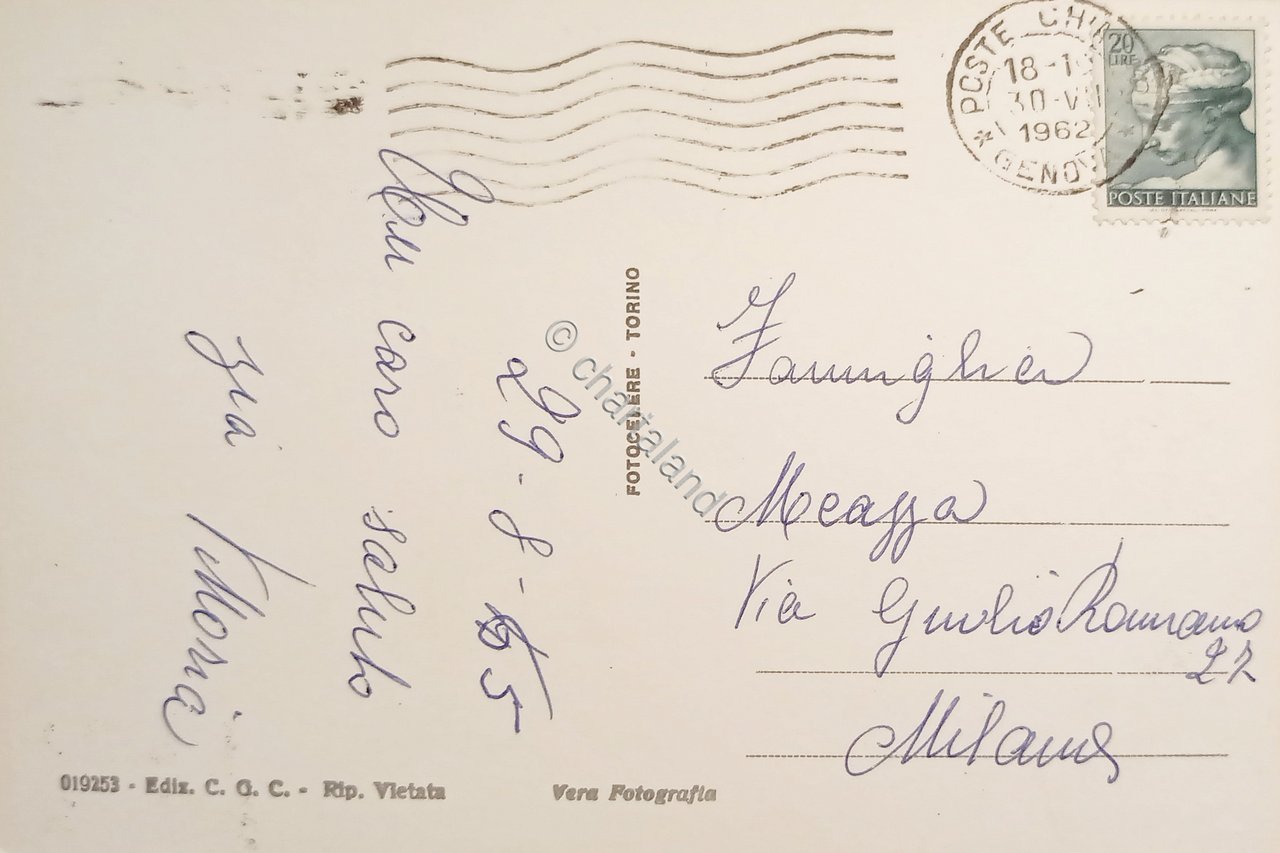 POSTE CHI
18-1
30-VII
1962
* GENOV *
20
LIRE
POSTE ITALIANE
29-8-65
Un caro saluto
zia Vittoria
© chartaland
FOTOCELERE - TORINO
Famiglia
Meazza
Via Giulio Romano
27
Milano
019253 - Ediz. C. G. C. - Rip. Vietata
Vera Fotografia